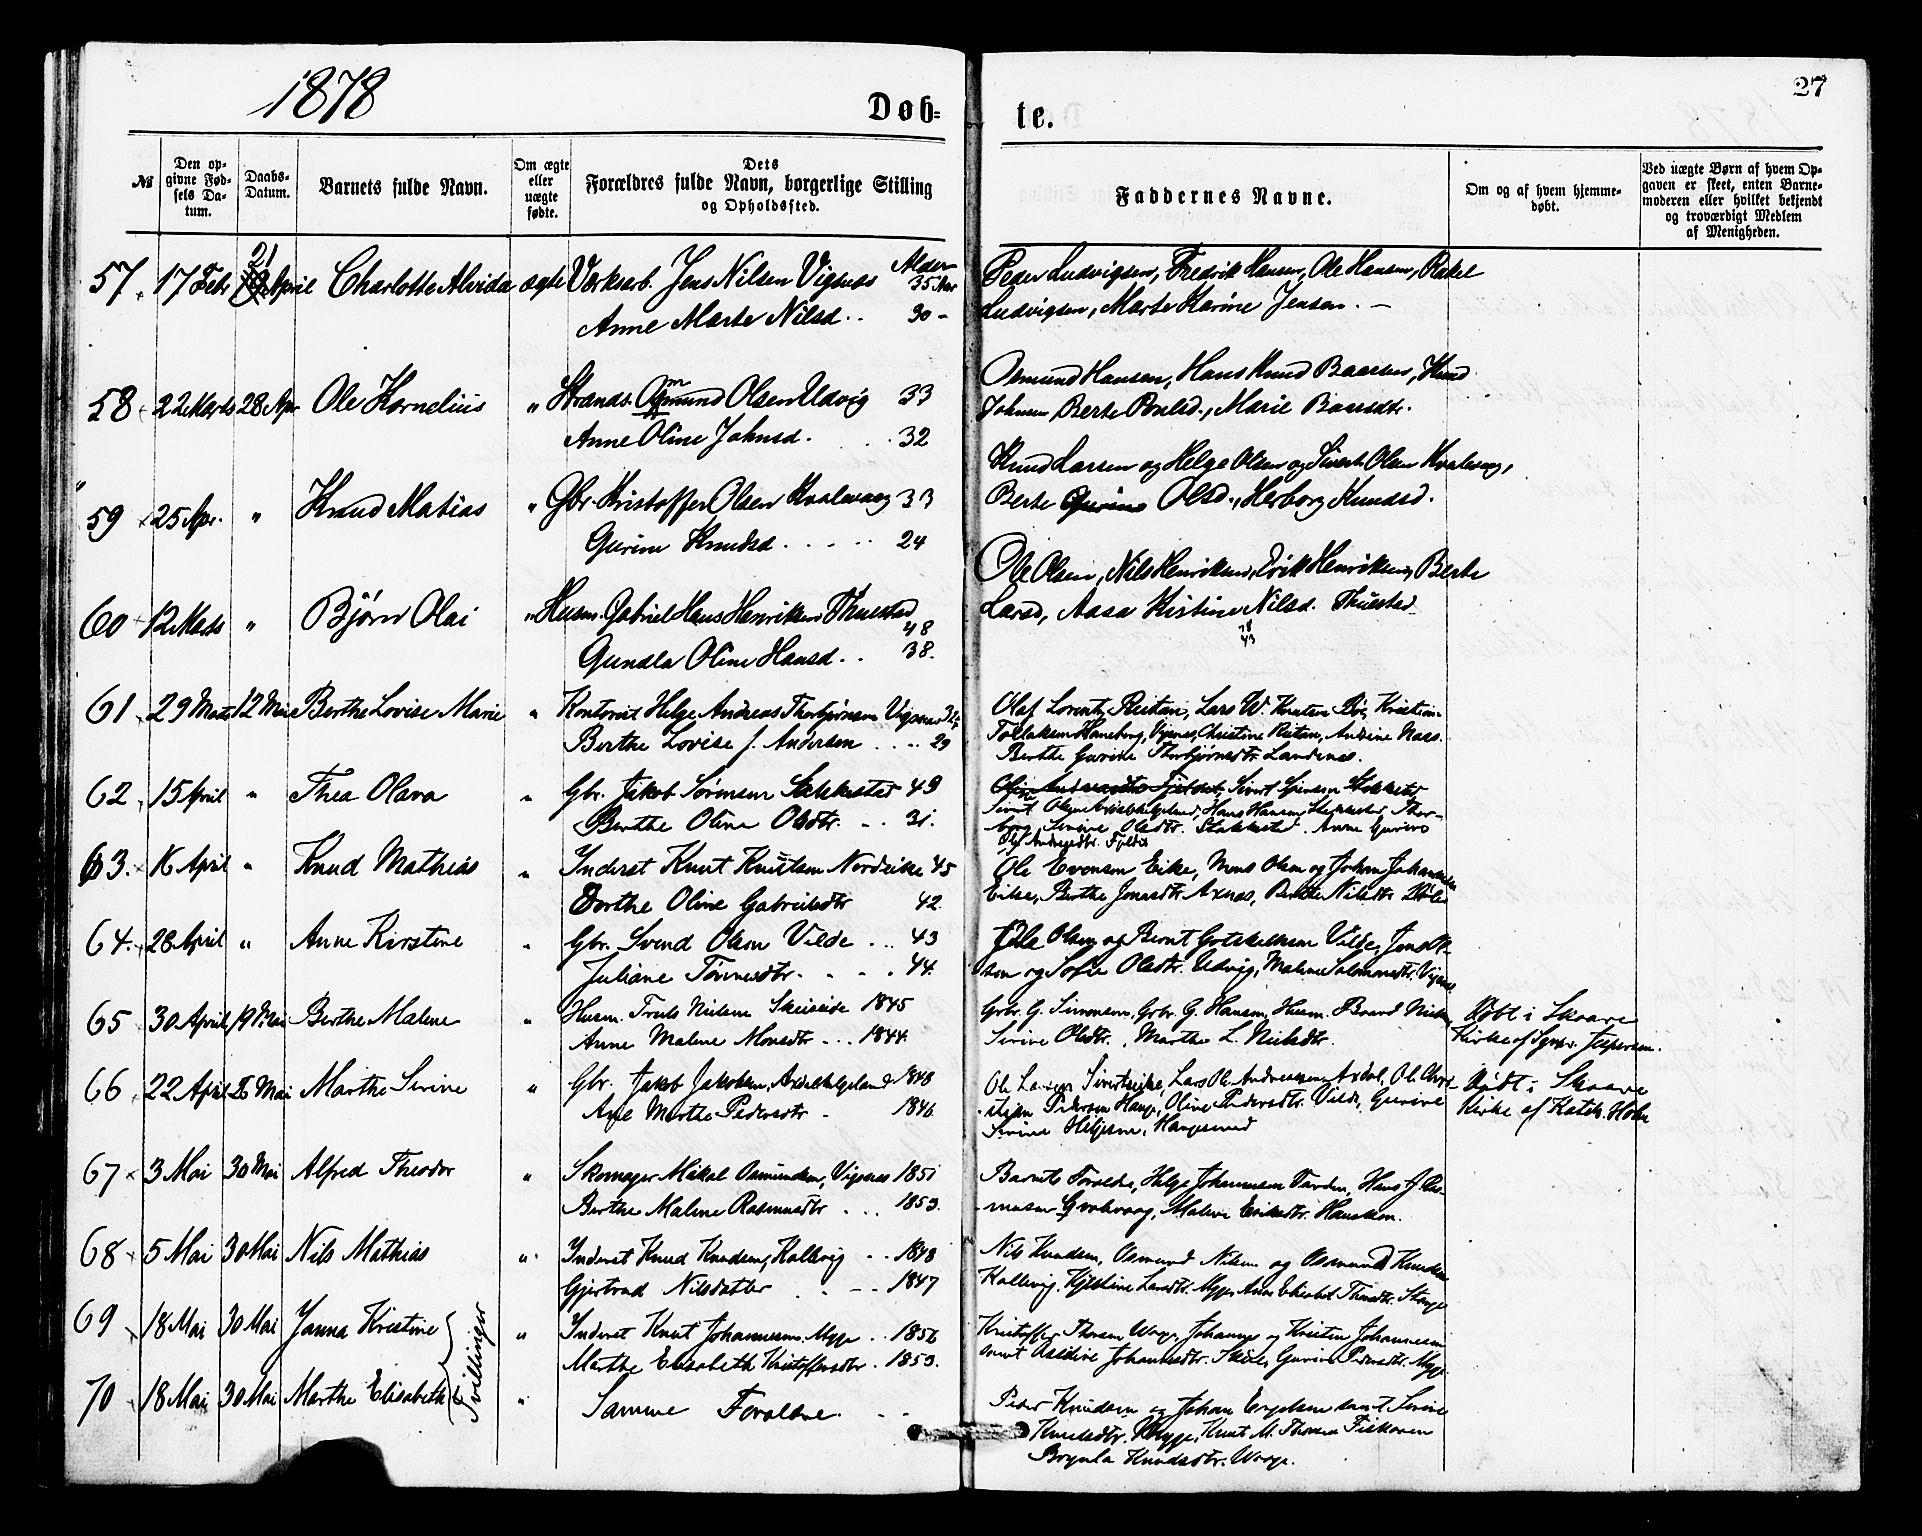 1878
Døb-
te.
27
№
Den op-
givne Fød-
sels Da-
tum.
Daabs-
Datum.
Barnets fulde Navn.
Om ægte
eller
uægte
fødte.
Dets
Forældres fulde Navn, borgerlige Stilling
og Opholdssted.
Faddernes Navne.
Om og af hvem hjemme-
døbt.
Ved uægte Børn af hvem Op-
gaven er skeet, enten Barne-
moderen eller hvilket bekjendt
og troværdigt Medlem
af Menigheden.
Alder
57 17 Febr 21 April Charlotte Alvida ægte Værksarb. Jens Nilsen Vigsnæs 35 Aar
Anne Marte Nilsd. . 30 -
Peder Ludvigsen, Fredrik Hansen, Ole Hansen, Rakel
Ludvigsen, Marte Karine Jensen. -
58 22 Marts 28 Apr Ole Kornelius " Strands. Osmund Olsen Udvig 33
Anne Oline Johnsd. 32
Osmund Hansen, Hans Knud Baarsen, Knud
Johnsen Berte Poulsd., Marie Baarsdtr.
59 25 Apr. " Knud Matias " Gbr. Kristoffer Olsen Kvalevaag 33
Gurine Knudsd . . . . . 24
Knud Larsen og Helge Olsen og Sivert Olsen Kvalevaag,
Berte Gurine Olsd., Herborg Knudsd.
60 12 Marts " Bjørn Olai " Husm. Gabriel Hans Henriksen Thuestad
48
Gundla Oline Hansd. . 38.
Ole Olsen, Nils Henriksen, Erik Henriksen, Berte
Larsd, Aasa Kistine Nilsd. Thuestad
61 29 Marts 12 Mai Berthe Lovise Marie " Kontorist Helge Andreas Thorbjørnsen Vigsnes
Berthe Lovise f. Andersen . . . . 29
Olaf Lorentz Reitan, Lars W. Knutsen Bø, Kristian
Haneborg, Vigsnes, Christine Reitan, Andrine Næss.
Berthe Gurine Thorbjørnsdtr Landenes.
62 15 April " Thea Olava " Gbr. Jakob Sørensen Stakkestad 49
Berthe Oline Olsdtr. . . 31.
Sivert Olsen Axdalhelgeland, Hans Hansen Stakkestad, Thor-
borg Serine Olsdtr. Stakkestad. Anne Gurine
63. 16 April " Knud Mathias " Inderst Knut Knutsen Nordeike 45
Dorthe Oline Gabrielsdtr 42.
Ole Evensen Eike, Mons Olsen og Johan Johannesen
Eike, Berthe Jonasdtr Axnæs, Berthe Nilsdtr
64. 28 April " Anne Kirstine " Gbr. Svend Olsen Vilde . . . 43
Juliane Tønnesdtr. . . . . 44.
Ole Olsen og Bernt Gotskalksen Vilde, Jens Ol-
sen og Sofie Olsdtr. Udvig, Malene Salomonsdtr. Vigsnes
65 30 April 19 Mai Berthe Malene " Husm. Truls Nielsen Skeiseide 1845
Anne Malene Monsdtr . . . 1844.
Gbr. G. Simonsen, Gbr. G. Hansen, Husm. Baard Nielsen,
Serine Olsdtr., Marthe L. Nielsdtr.
Døbt i Skaare
Kirke af Sgnpr. Jespersen.
66 22 April 26 Mai Marthe Serine " Gbr. Jakob Jakobsen, Axdalhelgeland 1848
Marthe Pedersdtr . 1846.
Ole Larsen Sivertseike, Lars Ol. Andreassen Axdal, Ole Chri-
stian Pedersen Hauge, Oline Pedersdtr. Vilde, Gurine
Serine Haugesund
Døbt i Skaare
Kirke af Katek. Holm
67 3 Mai 30 Mai Alfred Theodor " Skomager Mikal Osmundsen, Vigsnes 1851
Berthe Malene Rasmusdtr . . . 1853.
Barnets Forældre, Helge Johannesen Tarden, Hans J. Ras-
musen Kvalevaag, Malene Eriksdtr. Hausken.
68 5 Mai 30 Mai Nils Mathias " Inderst Knud Knudsen, Kallevig . . 1848
Gjertrud Nilsdatter . . . 1847
Nils Knudsen, Osmund Nilsen og Osmund Knudsen
Kallevig. Kjestine Larsdtr. Myge Anne Elisabet Thorsdtr. Stange
69 18 Mai 30 Mai Janna Kristine
Tvillinger
" Inderst Knut Johannesen Myge . . 1856
Marthe Elisabeth Kristoffersdtr . 1853.
Kristoffer Thorsen Waage, Johannes og Kristen Johannesen
samt Johannesdtr. Gurine Pedersdtr. Myge
70 18 Mai 30 Mai Marthe Elisabeth " Samme Forældre. - -
Peder Knudsen og Johan samt Serine
Knutsdtr. Myge, Knut M. Thorsen Fiskaaen
Brynla Knudsdtr. Waage.